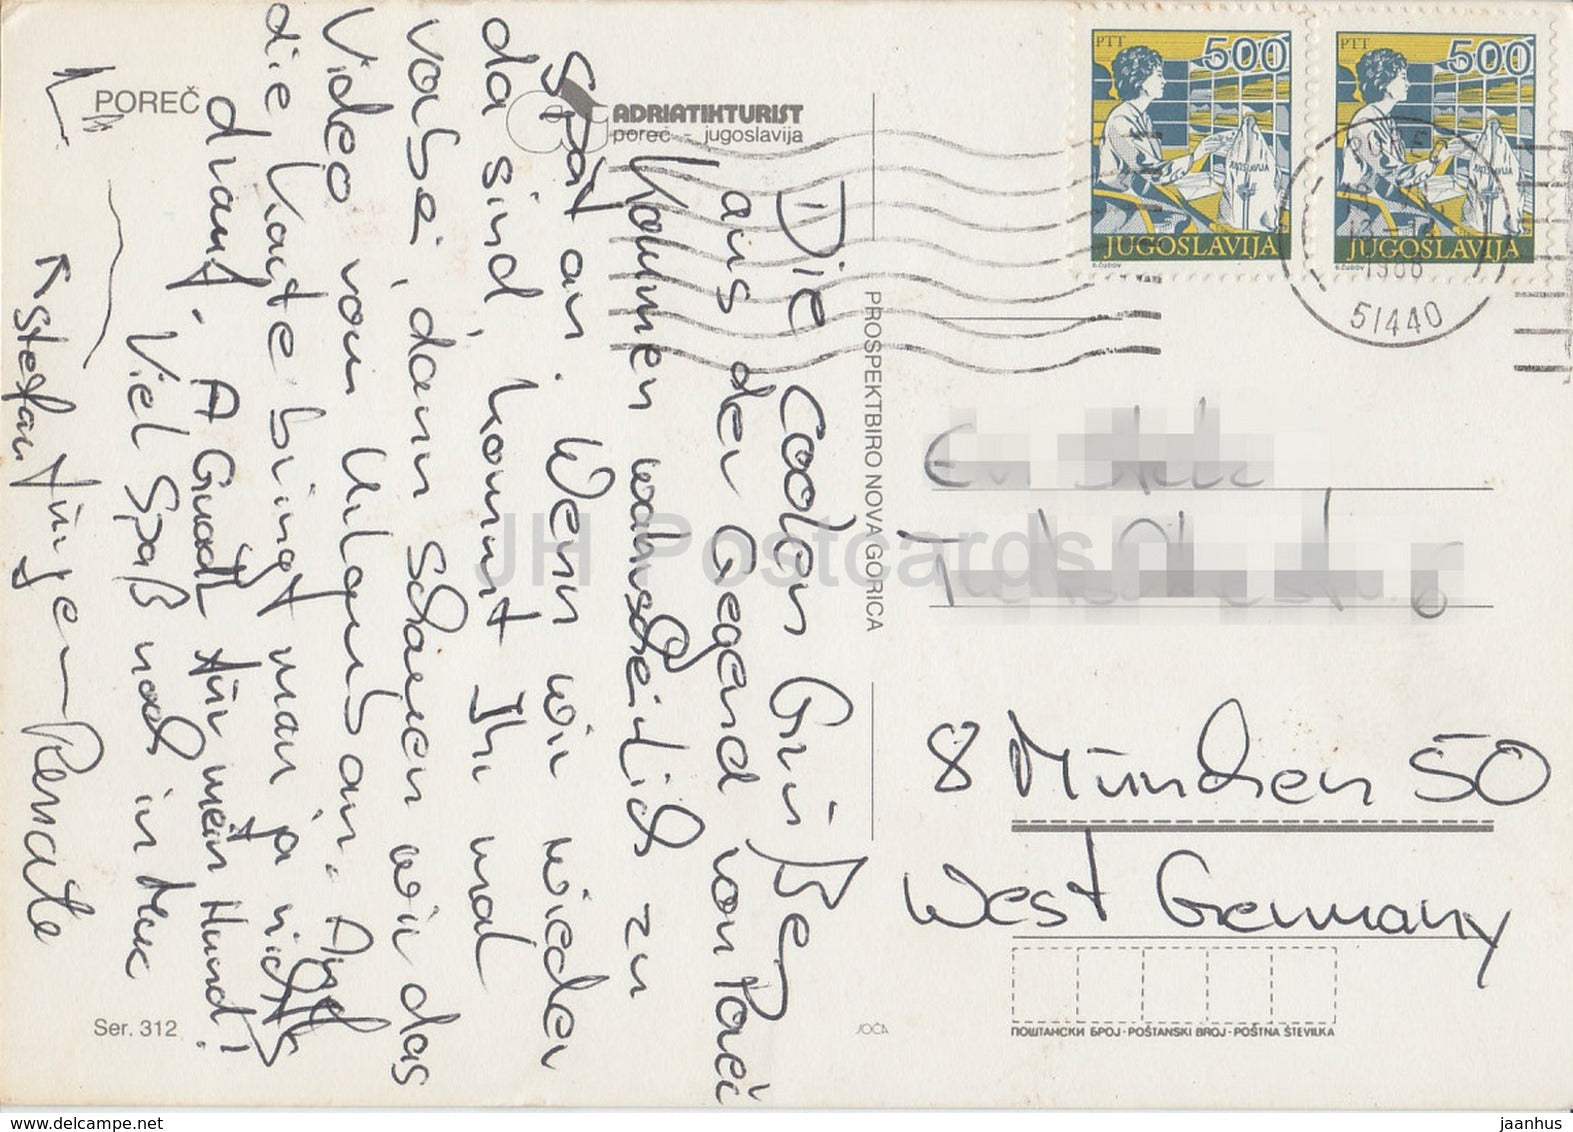 POREČ
ADRIATIKTURIST
poreč - jugoslavija
Die coolen Grüße
aus der Gegend von Poreč
kommen wahrscheinlich zu
spät an. Wenn wir wieder
da sind, kommt Ihr mal
vorbei, dann schauen wir das
Video vom Urlaub an. Auf
die Karte bringt man ja nichts
drauf. A Guadl für mein Hund!
Viel Spaß noch in Muc
Stefan Jürgen Renate
Ser. 312
PROSPEKTBIRO NOVA GORICA
PTT 500
JUGOSLAVIJA
B.ČUDOV
PTT 500
JUGOSLAVIJA
B.ČUDOV
POREČ
1988
51440
8 München 50
West Germany
ПОШТАНСКИ БРОЈ - POŠTANSKI BROJ - POŠTNA ŠTEVILKA
JOČA
JH Postcards
www.delcampe.net
jaanhus